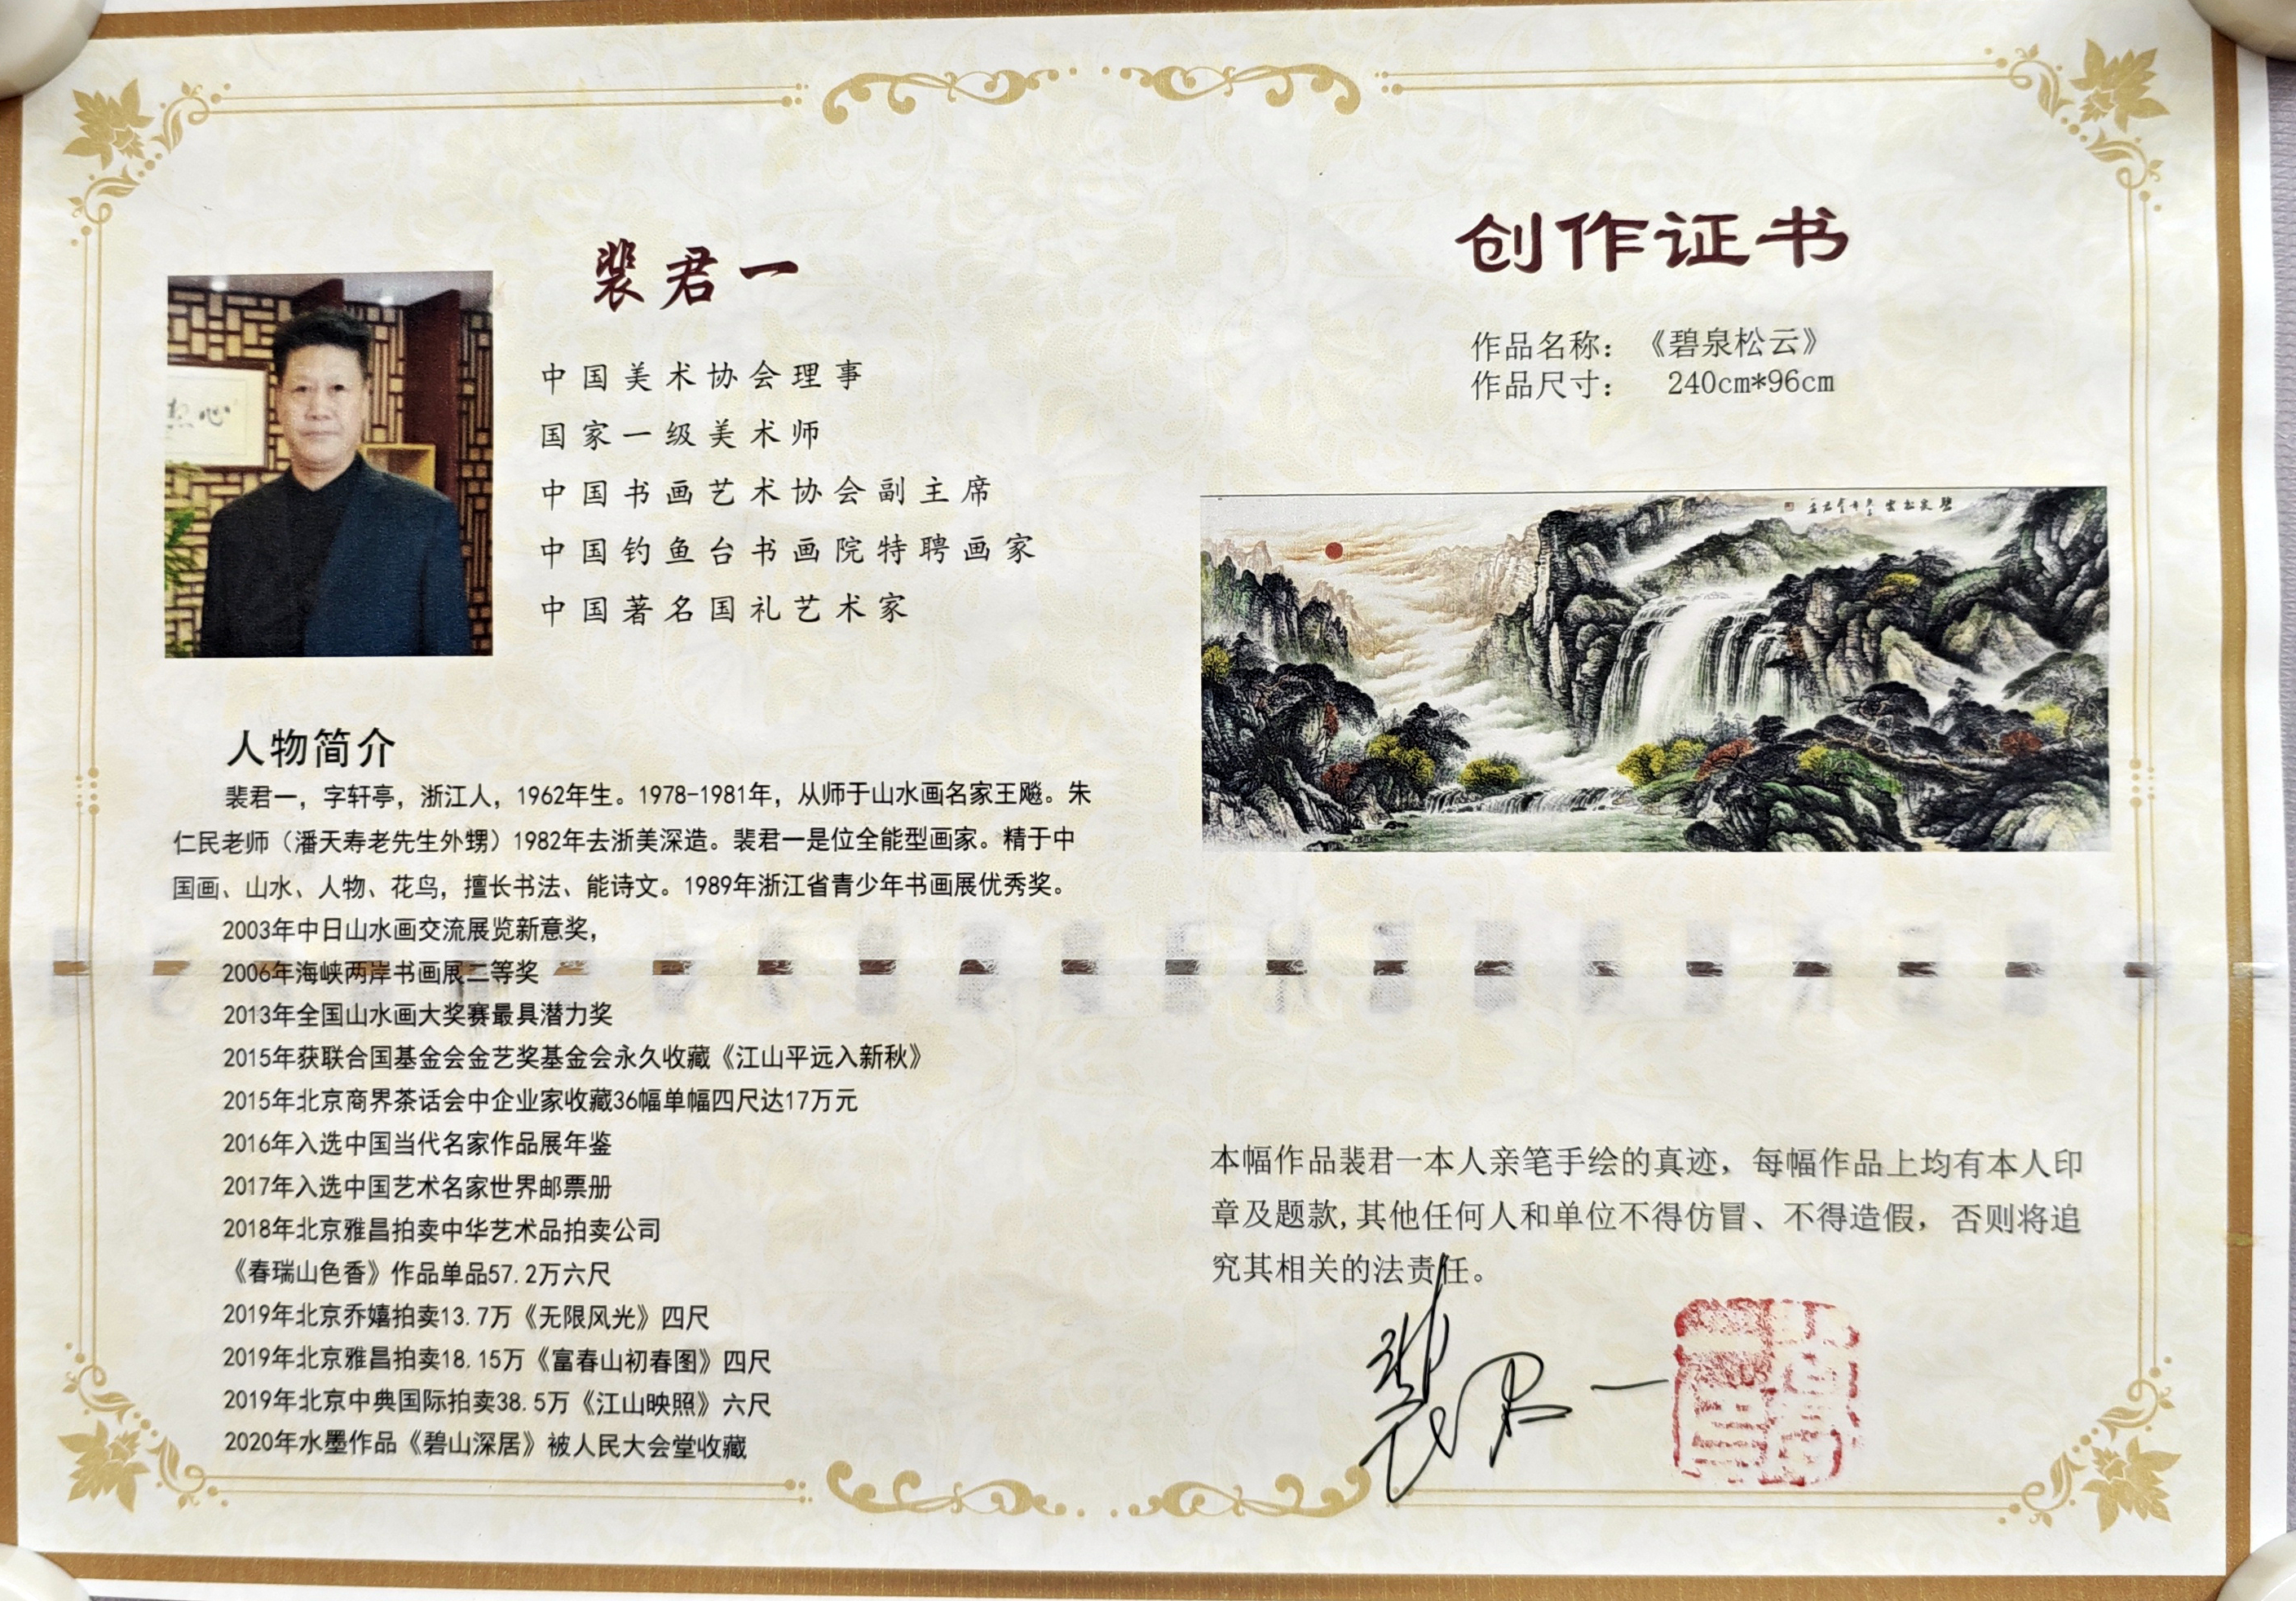 裴君一
中国美术协会理事
国家一级美术师
中国书画艺术协会副主席
中国钓鱼台书画院特聘画家
中国著名国礼艺术家
人物简介
裴君一，字轩亭，浙江人，1962年生。1978-1981年，从师于山水画名家王飚。朱
仁民老师（潘天寿老先生外甥）1982年去浙美深造。裴君一是位全能型画家。精于中
国画、山水、人物、花鸟，擅长书法、能诗文。1989年浙江省青少年书画展优秀奖。
2003年中日山水画交流展览新意奖，
2006年海峡两岸书画展二等奖
2013年全国山水画大奖赛最具潜力奖
2015年获联合国基金会金艺奖基金会永久收藏《江山平远入新秋》
2015年北京商界茶话会中企业家收藏36幅单幅四尺达17万元
2016年入选中国当代名家作品展年鉴
2017年入选中国艺术名家世界邮票册
2018年北京雅昌拍卖中华艺术品拍卖公司
《春瑞山色香》作品单品57.2万六尺
2019年北京乔嬉拍卖13.7万《无限风光》四尺
2019年北京雅昌拍卖18.15万《富春山初春图》四尺
2019年北京中典国际拍卖38.5万《江山映照》六尺
2020年水墨作品《碧山深居》被人民大会堂收藏
创作证书
作品名称：《碧泉松云》
作品尺寸： 240cm*96cm
碧泉松雲
本幅作品裴君一本人亲笔手绘的真迹，每幅作品上均有本人印
章及题款,其他任何人和单位不得仿冒、不得造假，否则将追
究其相关的法责任。
裴君一